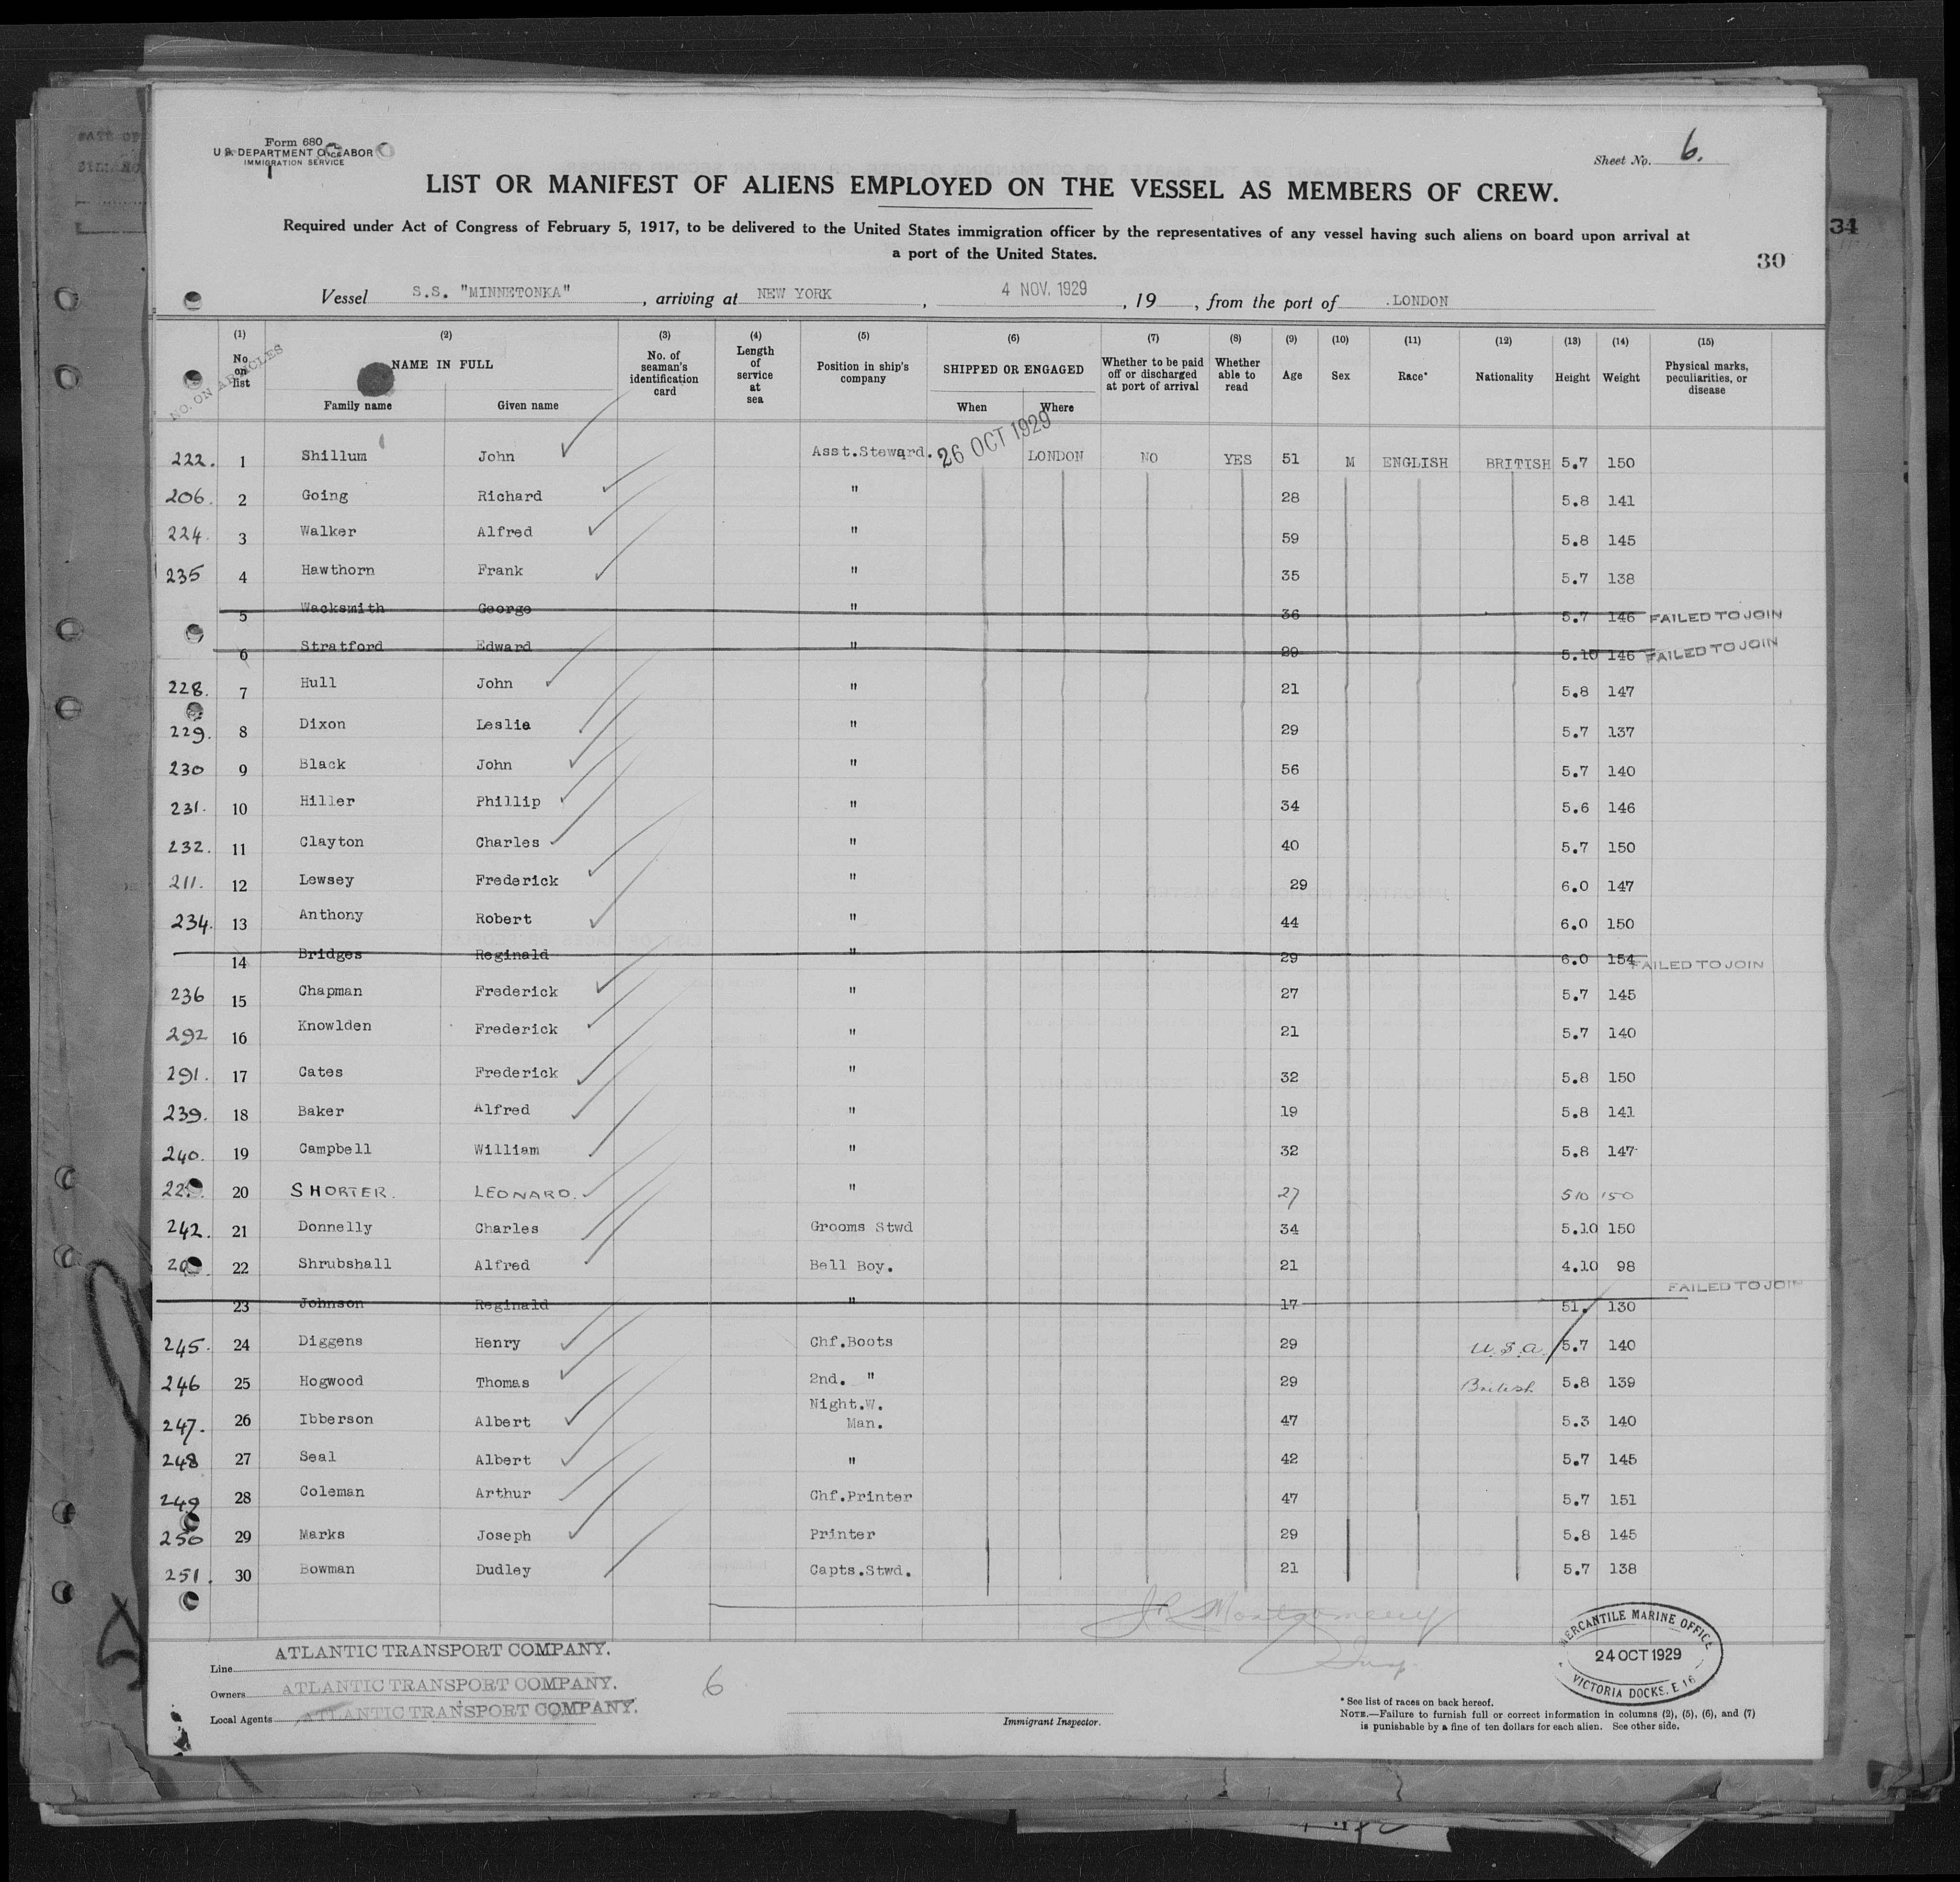 Form 680
U.S. DEPARTMENT OF LABOR
IMMIGRATION SERVICE
Sheet No. 6.
LIST OR MANIFEST OF ALIENS EMPLOYED ON THE VESSEL AS MEMBERS OF CREW.
Required under Act of Congress of February 5, 1917, to be delivered to the United States immigration officer by the representatives of any vessel having such aliens on board upon arrival at
a port of the United States.
34
30
Vessel S.S. "MINNETONKA", arriving at NEW YORK, 4 NOV. 1929, 19, from the port of LONDON
NO. ON ARTICLES
(1) No. on list
(2) NAME IN FULL Family name Given name
(3) No. of seaman's identification card
(4) Length of service at sea
(5) Position in ship's company
(6) SHIPPED OR ENGAGED When Where
(7) Whether to be paid off or discharged at port of arrival
(8) Whether able to read
(9) Age
(10) Sex
(11) Race*
(12) Nationality
(13) Height
(14) Weight
(15) Physical marks, peculiarities, or disease
222. 1 Shillum John Asst.Steward. 26 OCT 1929 LONDON NO YES 51 M ENGLISH BRITISH 5.7 150
206. 2 Going Richard " 28 5.8 141
224. 3 Walker Alfred " 59 5.8 145
235 4 Hawthorn Frank " 35 5.7 138
5 Wacksmith George " 36 5.7 146 FAILED TO JOIN
6 Stratford Edward " 29 5.10 146 FAILED TO JOIN
228. 7 Hull John " 21 5.8 147
229. 8 Dixon Leslie " 29 5.7 137
230 9 Black John " 56 5.7 140
231. 10 Hiller Phillip " 34 5.6 146
232. 11 Clayton Charles " 40 5.7 150
211. 12 Lewsey Frederick " 29 6.0 147
234. 13 Anthony Robert " 44 6.0 150
14 Bridges Reginald " 29 6.0 154 FAILED TO JOIN
236 15 Chapman Frederick " 27 5.7 145
292 16 Knowlden Frederick " 21 5.7 140
291. 17 Cates Frederick " 32 5.8 150
239. 18 Baker Alfred " 19 5.8 141
240. 19 Campbell William " 32 5.8 147
20 SHORTER. LEONARD. " 27 510 150
242. 21 Donnelly Charles Grooms Stwd 34 5.10 150
22 Shrubshall Alfred Bell Boy. 21 4.10 98
23 Johnson Reginald " 17 51. 130 FAILED TO JOIN
245. 24 Diggens Henry Chf.Boots 29 U.S.A. 5.7 140
246 25 Hogwood Thomas 2nd. " 29 British 5.8 139
247. 26 Ibberson Albert Night.W. Man. 47 5.3 140
248 27 Seal Albert " 42 5.7 145
249 28 Coleman Arthur Chf.Printer 47 5.7 151
250 29 Marks Joseph Printer 29 5.8 145
251. 30 Bowman Dudley Capts.Stwd. 21 5.7 138
Montgomery
Insp.
MERCANTILE MARINE OFFICE
24 OCT 1929
VICTORIA DOCKS. E 16
Line ATLANTIC TRANSPORT COMPANY.
Owners ATLANTIC TRANSPORT COMPANY.
Local Agents ATLANTIC TRANSPORT COMPANY.
6
Immigrant Inspector.
* See list of races on back hereof.
NOTE.—Failure to furnish full or correct information in columns (2), (5), (6), and (7)
is punishable by a fine of ten dollars for each alien. See other side.